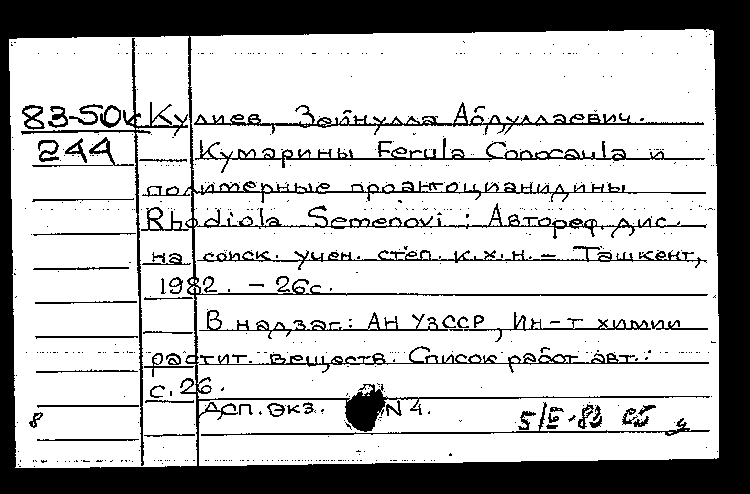 83-50к Кулиев, Зайнулла Абдуллаевич.
244 Кумарины Ferula Conocaula и
полимерные проантоцианидины
Rhodiola Semenovi : Автореф. дис.
на соиск. учен. степ. к.х.н. – Ташкент,
1982. – 26с.
В надзаг.: АН УзССР, Ин-т химии
растит. веществ. Список работ авт.:
с.26.
Доп. экз. N 4.
8